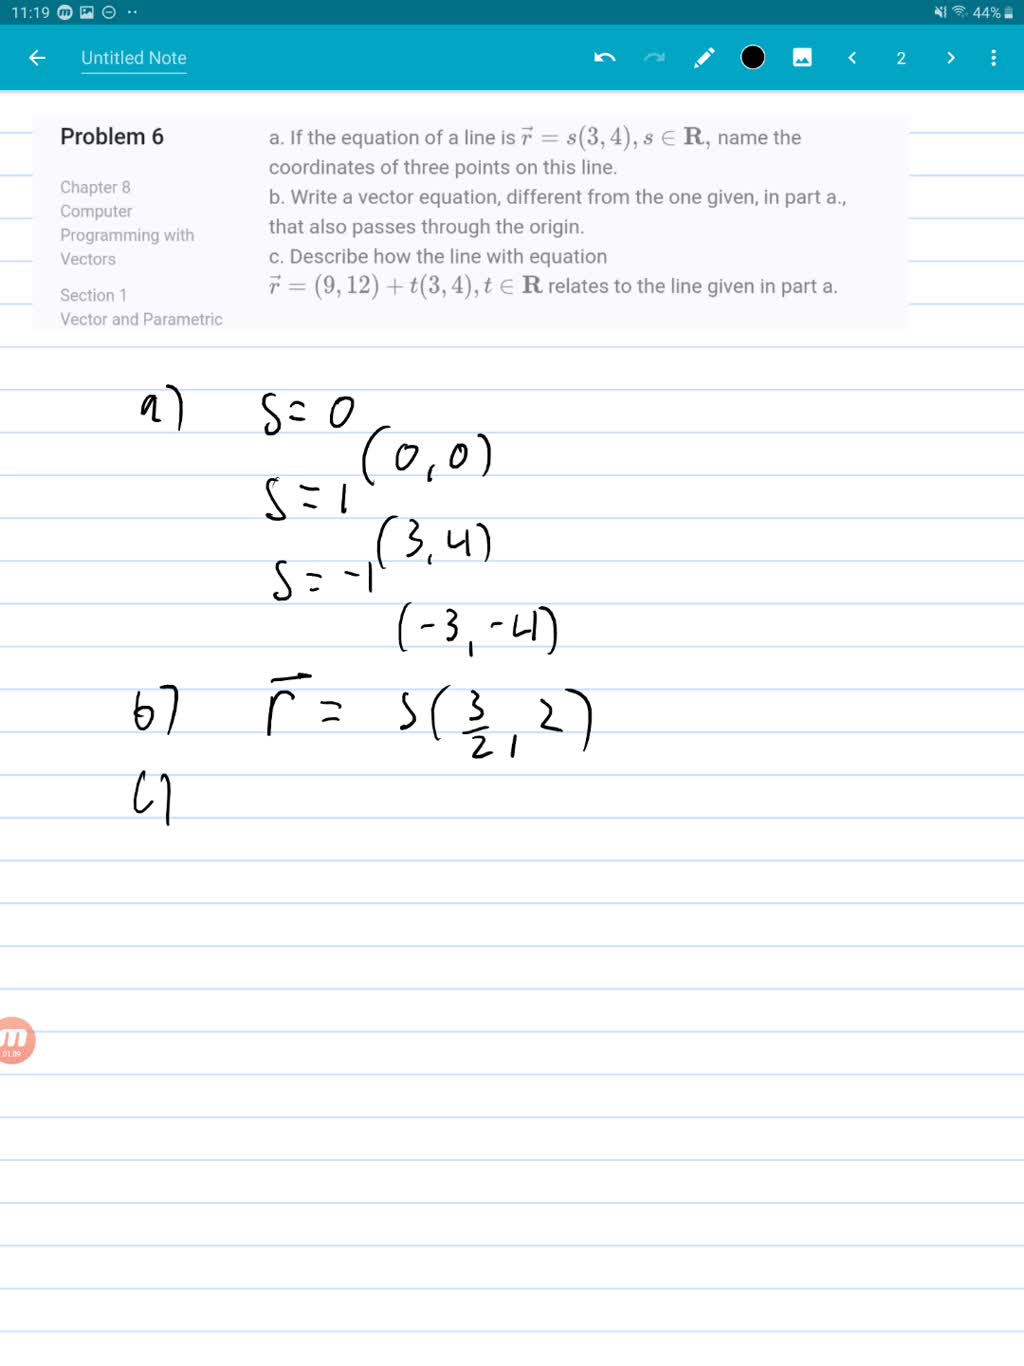 11:19
44%
Untitled Note
2
Problem 6
Chapter 8
Computer
Programming with
Vectors
Section 1
Vector and Parametric
a. If the equation of a line is r⃗ = s(3, 4), s ∈ R, name the
coordinates of three points on this line.
b. Write a vector equation, different from the one given, in part a.,
that also passes through the origin.
c. Describe how the line with equation
r⃗ = (9, 12) + t(3, 4), t ∈ R relates to the line given in part a.
a) s = 0
(0, 0)
s = 1
(3, 4)
s = -1
(-3, -4)
b) r⃗ = s(3/2, 2)
c)
m
01:09